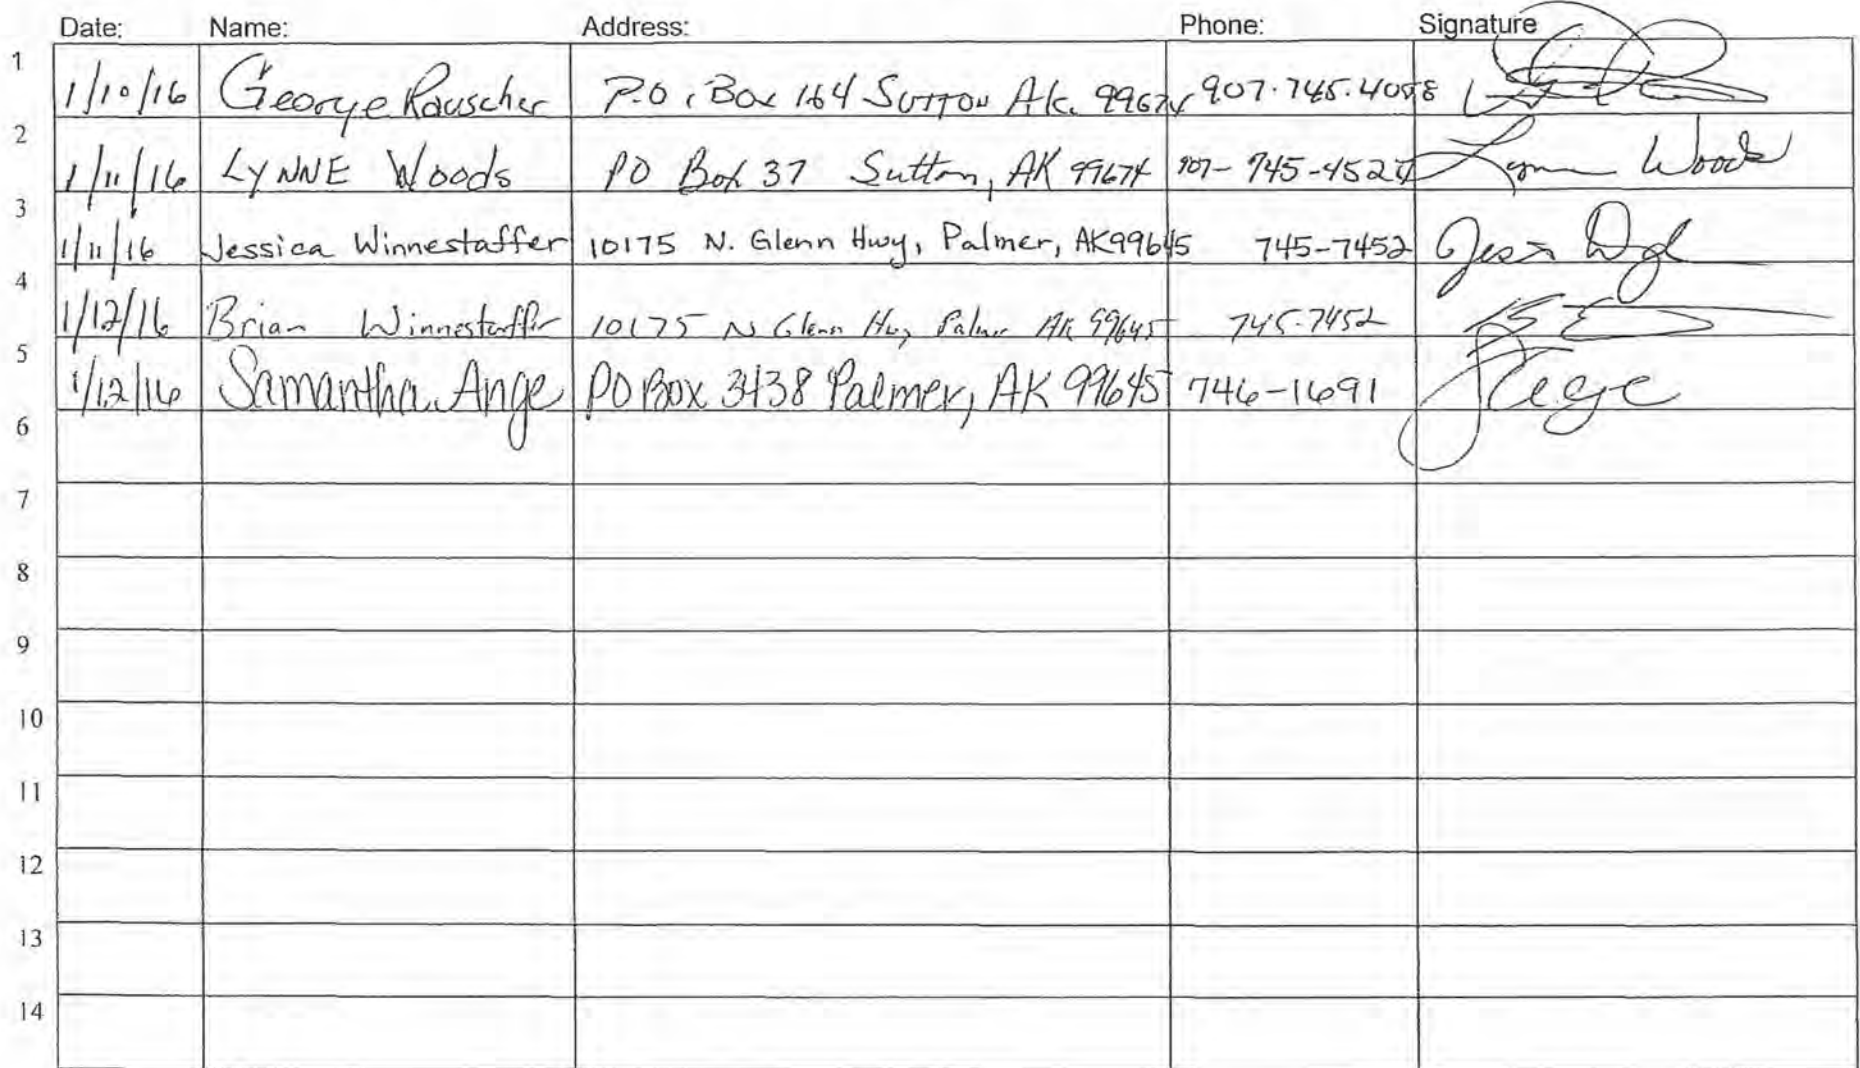 Date: Name: Address: Phone: Signature
1 1/10/16 George Rauscher P.O. Box 164 Sutton Ak. 99674 907.745.
2 1/11/16 LYNNE Woods PO Box 37 Sutton, AK 99674 907-745-4527 Lynne Woods
3 1/11/16 Jessica Winnestaffer 10175 N. Glenn Hwy, Palmer, AK 99645 745-7452
4 1/12/16 Brian Winnestaffer 10175 N Glenn Hwy Palmer AK 99645 745-7452
5 1/12/16 Samantha Ange PO Box 3438 Palmer, AK 99645 746-1691
6
7
8
9
10
11
12
13
14